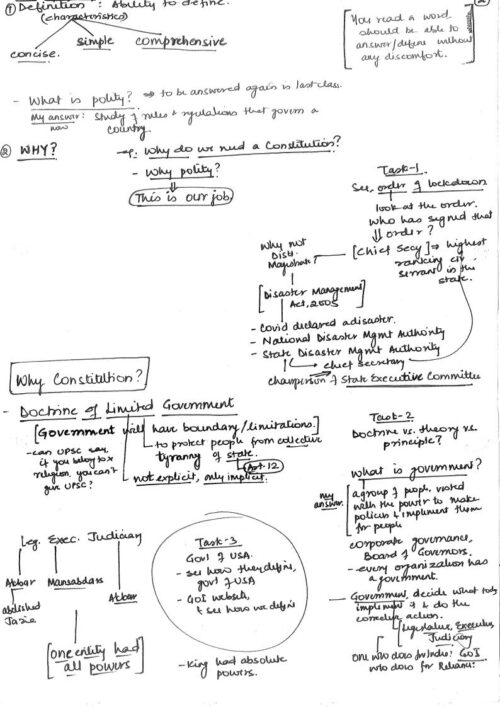 ① Definition : Ability to define.
(characteristics)
concise. simple comprehensive
[You read a word
should be able to
answer/define without
any discomfort.]
- What is polity? ⇒ to be answered again in last class.
My answer: Study of rules & regulations that govern a
now country.
② WHY? → eg. Why do we need a Constitution?
- Why polity?
⇓
(This is our job)
Task-1
See, order of lockdown
look at the order.
Who has signed that
⇓ order?
[Chief Secy] ⇒ highest
ranking civ
servant in the
state.
Why not
Distt.
Magistrate?
[Disaster Management
Act, 2005]
- Covid declared a disaster.
- National Disaster Mgmt Authority
- State Disaster Mgmt Authority
→ Chief Secretary
chairperson of State Executive Committee
Why Constitution?
- Doctrine of Limited Government
[Government will have boundary/limitations.]
to protect people from collective
tyranny of state.
Art-12
not explicit, only implicit.
- can UPSC say,
if you belong to x
religion, you can't
give UPSC?
Task-2
Doctrine vs. theory vs.
principle?
What is government?
My
answer.
[a group of people, vested
with the power to make
policies & implement them
for people
corporate governance,
Board of Governors.
- every organization has
a government.
Government, decide what to do,
implement it & do the
corrective action.
Legislature, Executive,
Judiciary
One who does for India: GoI
who does for Reliance:
Leg. Exec. Judiciary
Akbar Mansabdars Akbar
abolished
Jazia
[One entity had
all powers]
Task-3
Govt of USA.
- see how they define,
govt of USA
- GoI website,
& see how we define
- King had absolute
powers.